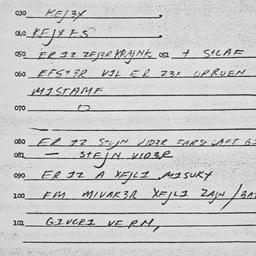 030 KEJ3X
040 KEJX FS
050 ER IZ ZEJ3R KRAJNK 051 + SILAF
060 EFST3R VIL ER Z3X UPRUEN
MISTAMF
070 O
080 ER IZ STEJN VID3R FARS LAFT GI
081 — STEJN VID3R
090 ER IZ A XEJLI MISUKY
100 EM MIVAK3R XEJLI ZAJN / 3A
101 GIVGRI VERM,